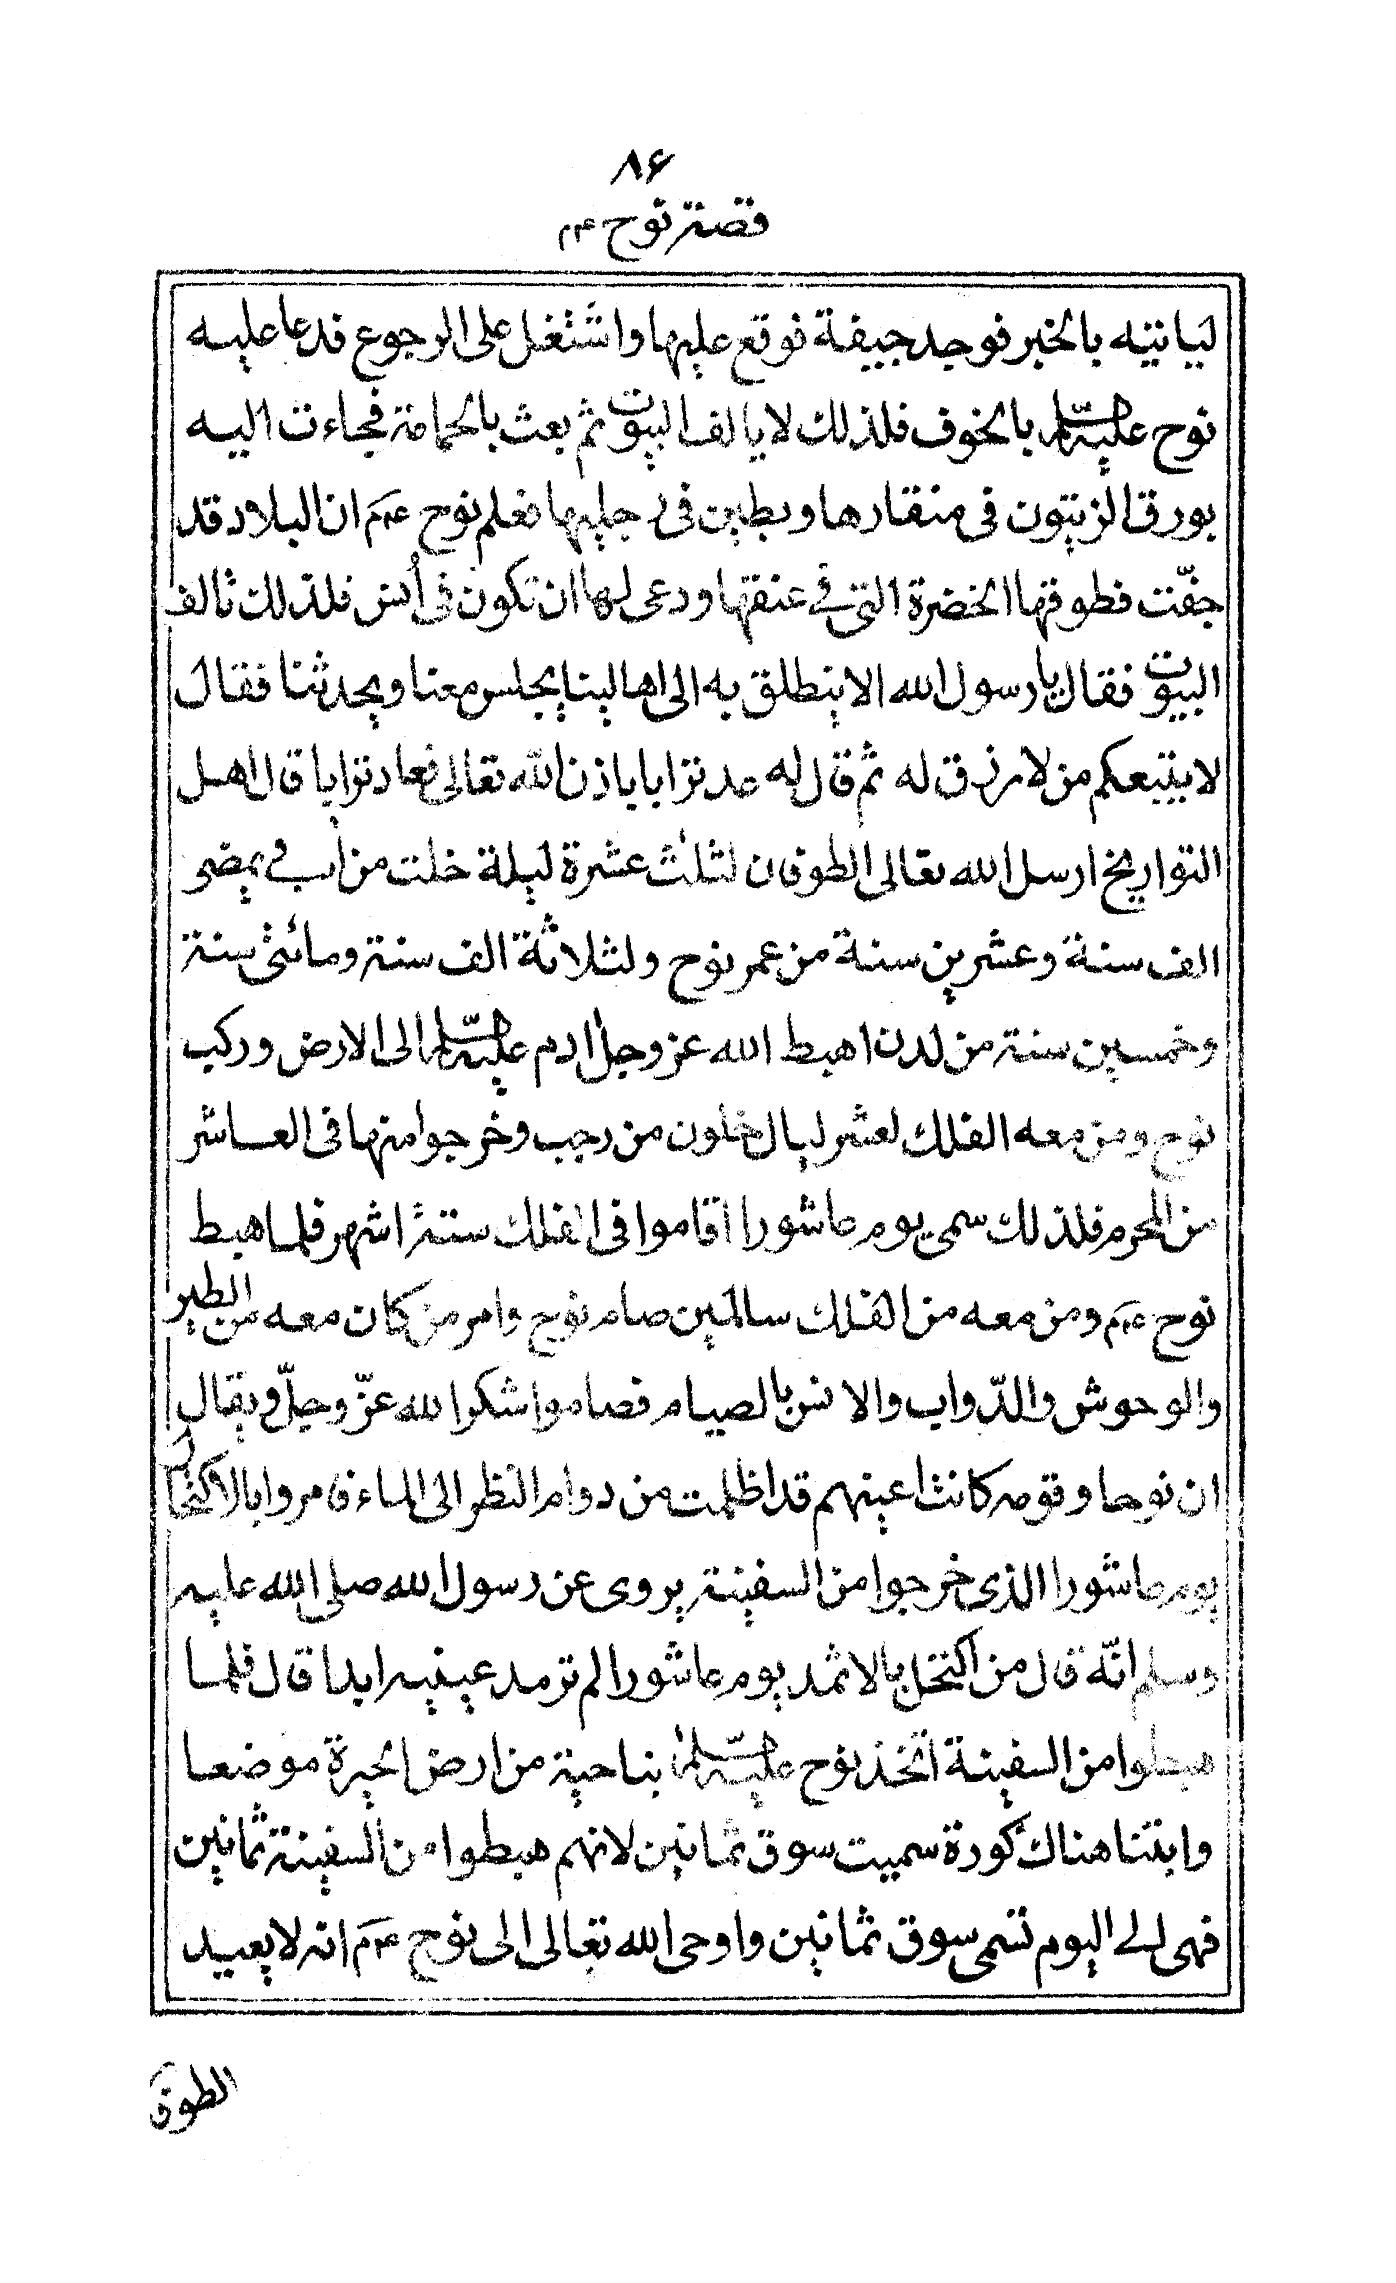 ٨۶
قصة نوح ع م
ليأتيه بالخبر فوجد جيفة فوقع عليها واشتغل على الرجوع فدعا عليه
نوح عليه السلام بالخوف فلذلك لا يالف البيوت ثم بعث بالحمامة فجاءت اليه
بورق الزيتون في منقارها وبطين في رجليها فعلم نوح عم ان البلاد قد
جفّت فطوقها الخضرة التي في عنقها ودعى لها ان تكون في أنس فلذلك تالف
البيوت فقال يا رسول الله الا ينطلق به الى اهالينا يجلس معنا ويحدثنا فقال
لا يتبعكم من لا رزق له ثم قال له عد ترابا باذن الله تعالى فعاد ترابا قال اهل
التواريخ ارسل الله تعالى الطوفان لثلث عشرة ليلة خلت من اب في مضى
الف سنة وعشرين سنة من عمر نوح ولثلاثة الف سنة ومائتى سنة
وخمسين سنة من لدن اهبط الله عز وجل ادم عليه السلام الى الارض وركب
نوح ومن معه الفلك لعشر ليال خلون من رجب وخرجوا منها في العاشر
من المحرم فلذلك سمى يوم عاشورا اقاموا في الفلك ستة اشهر فلما هبط
نوح عم ومن معه من الفلك سالمين صام نوح وامر من كان معه من الطير
والوحوش والدّواب والانس بالصيام فصاموا شكرا لله عزّ وجلّ ويقال
ان نوحا وقومه كانت اعينهم قد اظلمت من دوام النظر الى الماء فامروا بالاكتحال
يوم عاشورا الذي خرجوا من السفينة يروى عن رسول الله صلى الله عليه
وسلم انّه قال من اكتحل بالاثمد يوم عاشورا لم ترمد عينيه ابدا قال فلما
هبطوا من السفينة اتّخذ نوح عليه السلام بناحية من ارض الجزيرة موضعا
وابتنا هناك كورة سميت سوق ثمانين لانهم هبطوا من السفينة ثمانين
فهى الى اليوم تسمى سوق ثمانين واوحى الله تعالى الى نوح عم انه لا يعيد
الطوفا